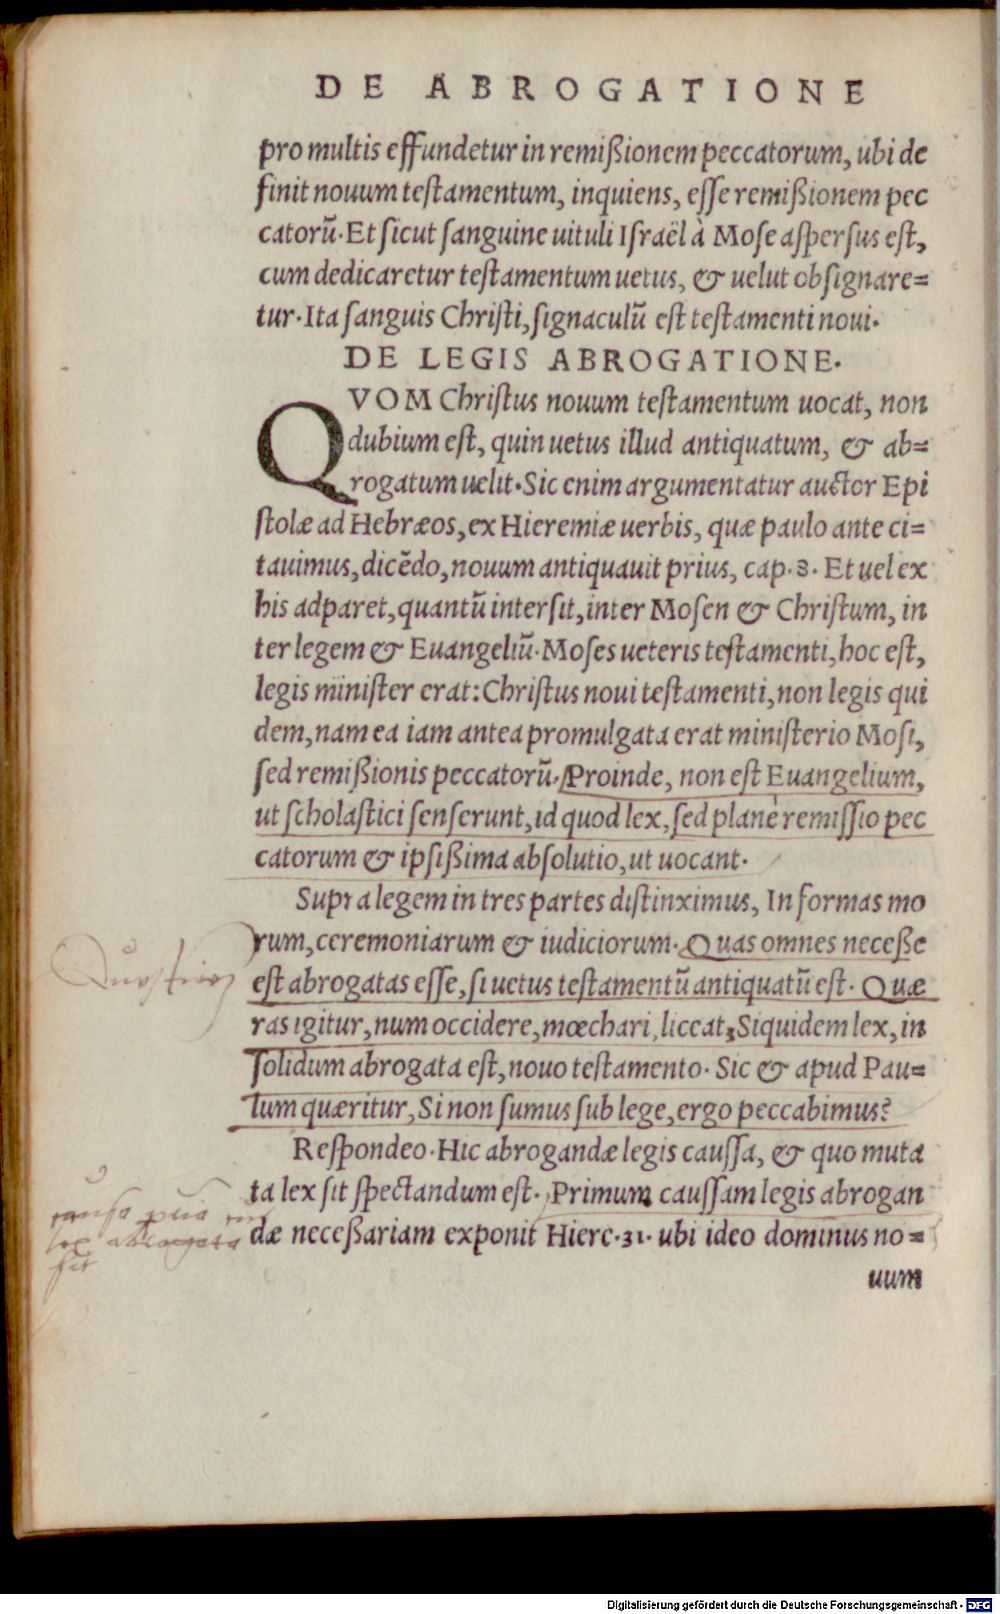 DE ABROGATIONE
pro multis effundetur in remißionem peccatorum, ubi de
finit nouum testamentum, inquiens, esse remißionem pec
catorū. Et sicut sanguine uituli Israël à Mose aspersus est,
cum dedicaretur testamentum uetus, & uelut obsignare=
tur. Ita sanguis Christi, signaculū est testamenti noui.
DE LEGIS ABROGATIONE.
QVOM Christus nouum testamentum uocat, non
dubium est, quin uetus illud antiquatum, & ab=
rogatum uelit. Sic enim argumentatur auctor Epi
stolæ ad Hebræos, ex Hieremiæ uerbis, quæ paulo ante ci=
tauimus, dicēdo, nouum antiquauit prius, cap. 8. Et uel ex
his adparet, quantū intersit, inter Mosen & Christum, in
ter legem & Euangeliū. Moses ueteris testamenti, hoc est,
legis minister erat: Christus noui testamenti, non legis qui
dem, nam ea iam antea promulgata erat ministerio Mosi,
sed remißionis peccatorū. Proinde, non est Euangelium,
ut scholastici senserunt, id quod lex, sed planè remissio pec
catorum & ipsißima absolutio, ut uocant.
Supra legem in tres partes distinximus, In formas mo
rum, ceremoniarum & iudiciorum. Quas omnes necesse
Questio
est abrogatas esse, si uetus testamentū antiquatū est. Quæ
ras igitur, num occidere, mœchari, liceat, Siquidem lex, in
solidum abrogata est, nouo testamento. Sic & apud Pau=
lum quæritur, Si non sumus sub lege, ergo peccabimus?
Respondeo. Hic abrogandæ legis caussa, & quo muta
ta lex sit spectandum est. Primum caussam legis abrogan
causa
lex abrogata
sit
dæ neceßariam exponit Hiere. 31. ubi ideo dominus no=
uum
Digitalisierung gefördert durch die Deutsche Forschungsgemeinschaft - DFG